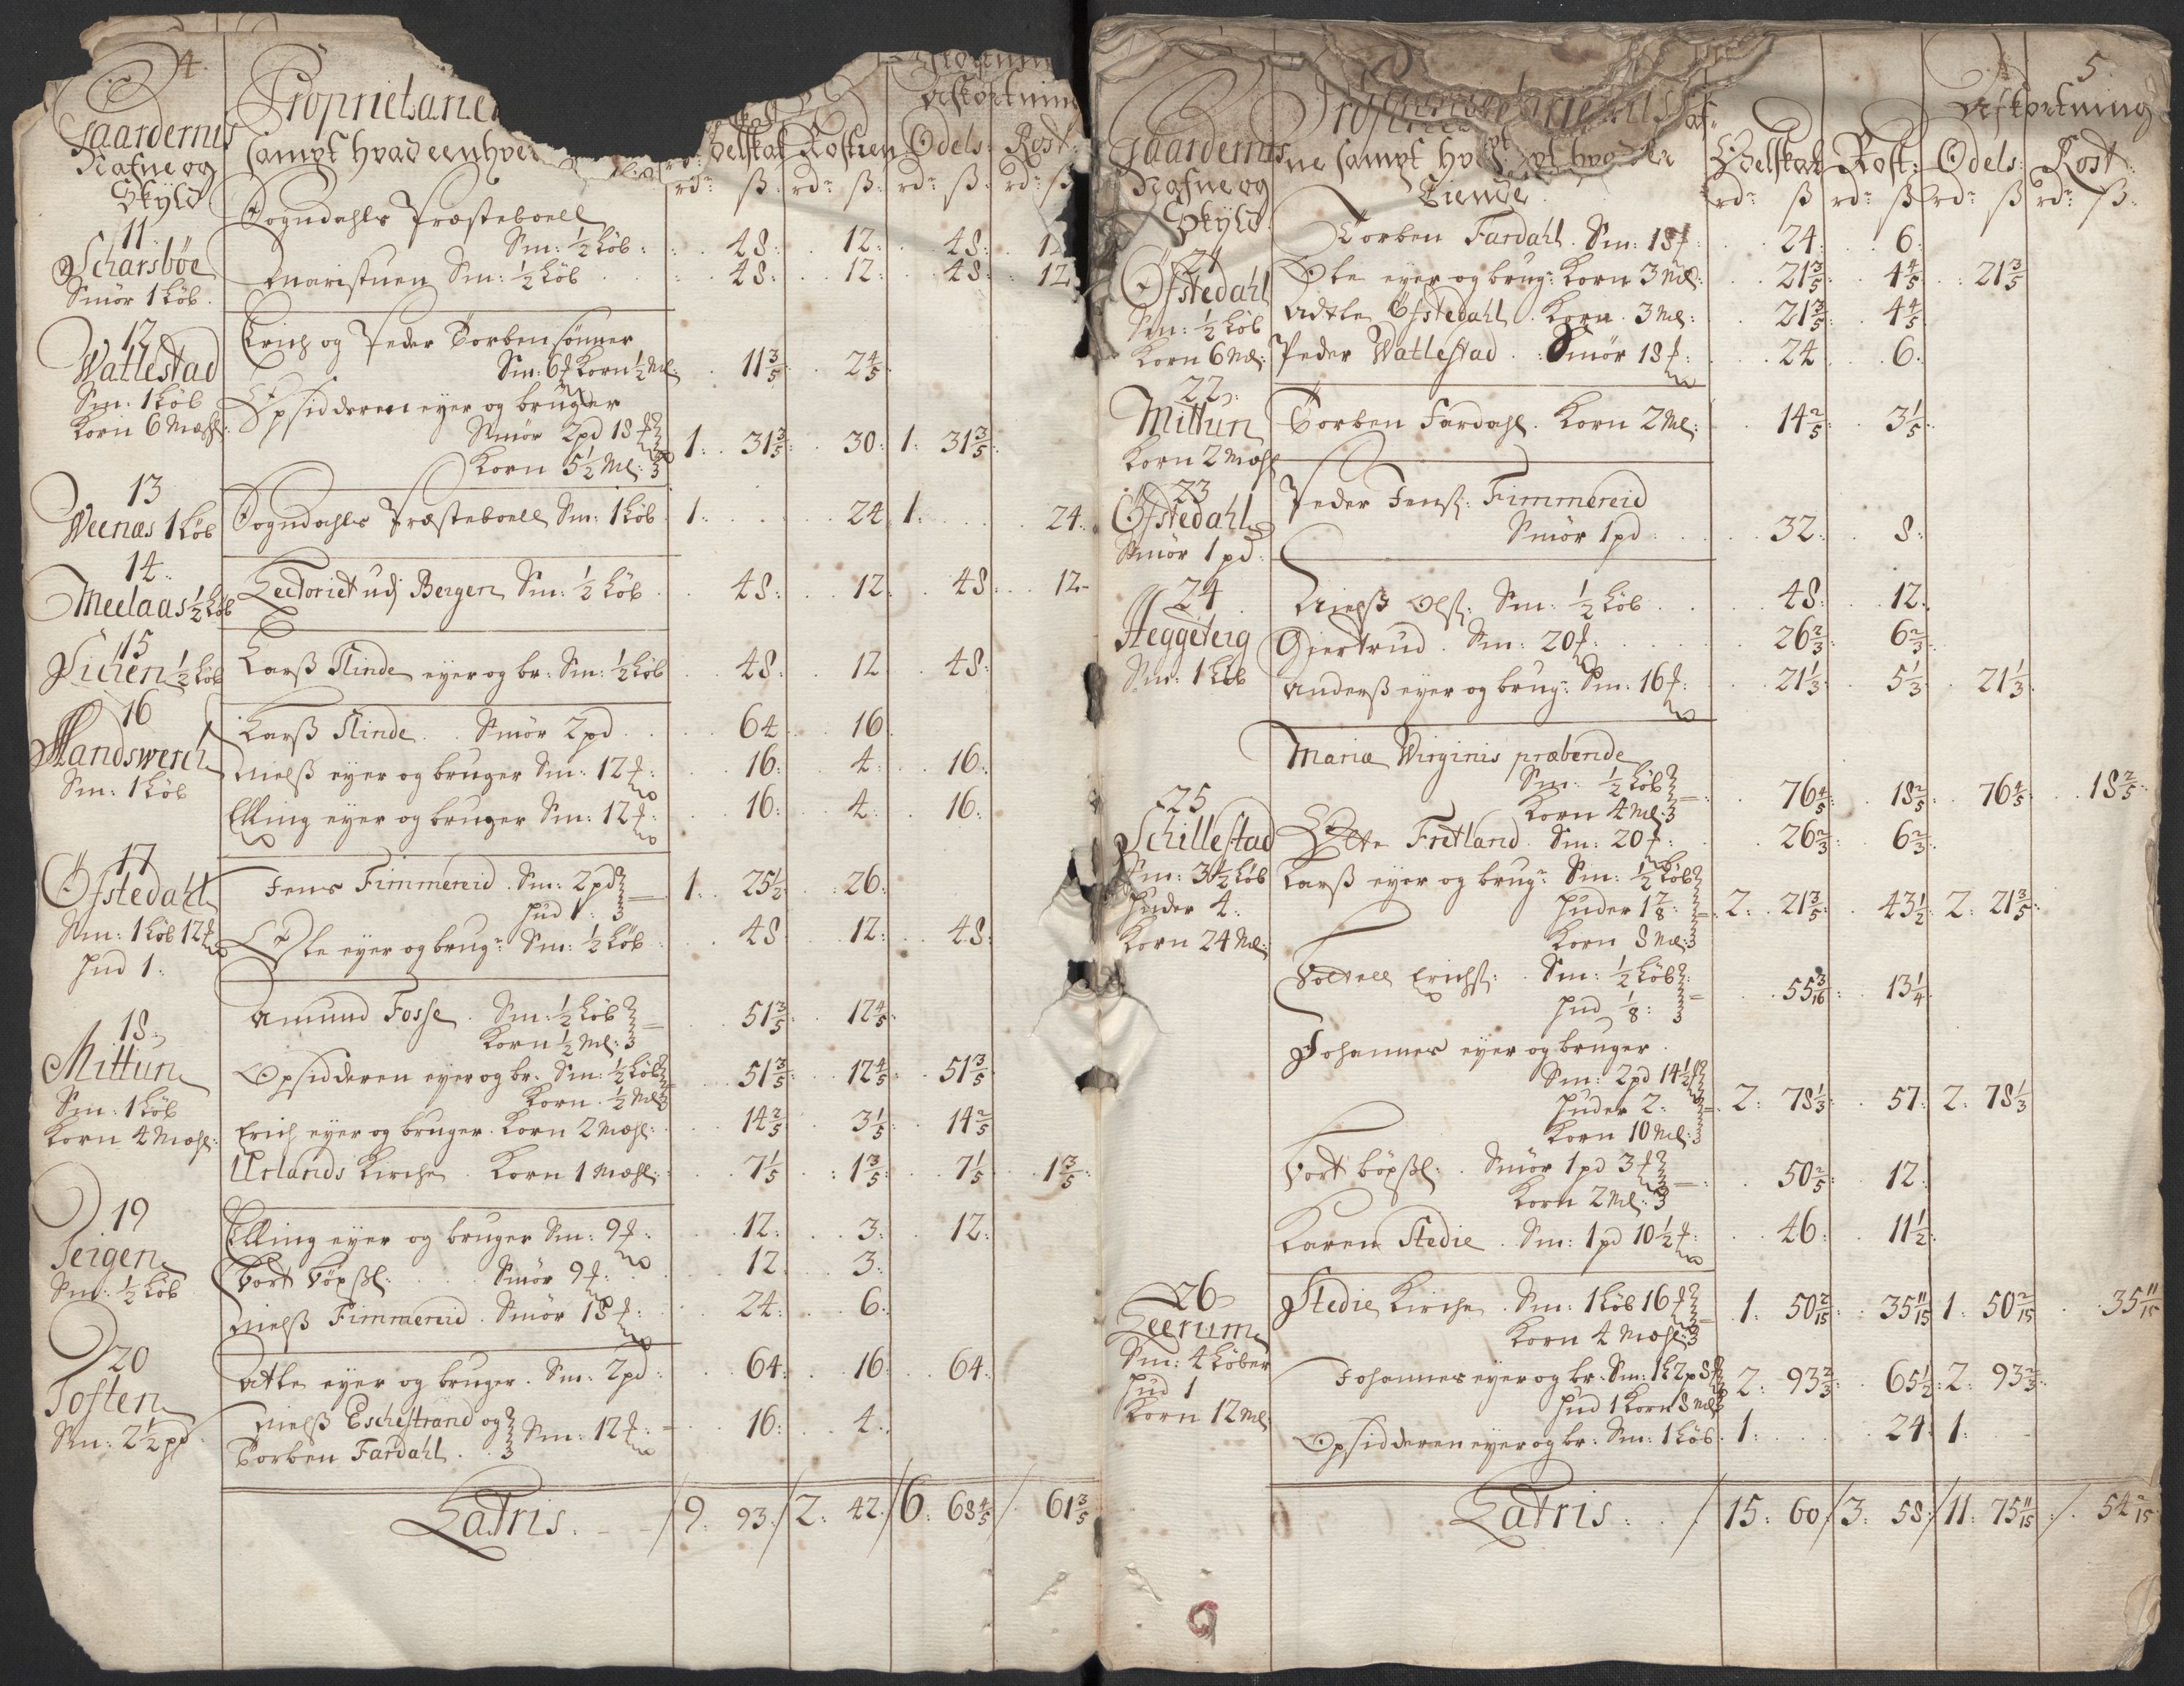 4.
Gaardernis
Nafne og
Skÿld
Proprietarie
sampt hvad eenhver
Afkortning
Odelskat Rostien Odels: Rost:
rdr ß: rdr ß: rdr ß: rdr ß
11.
Scharsböe
Smör 1 Löb.
Sogndahls Præsteboell
Sm: ½ Löb: 48: 12: 48: 12
Maristuen Sm: ½ Löb 48: 12: 48: 12
12
Watlestad
Sm: 1 Löb
Korn 6 Mæhl:
Erich og Peder Torbensönner
Sm: 6 ℔ Korn ½ Ml: 11 3/5: 2 4/5:
Opsidderen eyer og bruger
Smör 2 pd 18 ℔
Korn 5½ Ml: 1: 31 3/5: 30: 1: 31 3/5:
13
Weenæs 1 Löb
Sogndahls Præsteboell Sm: 1 Löb 1: 24 1: 24:
14
Meelaas ½ Löb
Lectoriet udj Bergen Sm: ½ Löb 48: 12 48: 12
15
Lieien ½ Löb
Larß Slinde eyer og br: Sm: ½ Löb 48: 12 48:
16
Handswerch
Sm: 1 Löb
Larß Slinde Smör 2 pd 64 16
Nielß eyer og bruger Sm: 12 ℔: 16: 4: 16:
Elling eyer og bruger Sm: 12 ℔: 16: 4: 16:
17
Ofstedahl
Sm: 1 Löb 12 ℔
Hud 1:
Jens Fimmereid Sm: 2 pd
Hud 1: 1: 25½ 26:
Ole eyer og brugr Sm: ½ Löb 48 12: 48:
18
Mittun
Sm: 1 Löb
Korn 4 Mæhl:
Amund Fosse Sm: ½ Löb
Korn ½ Ml: 51 3/5: 12 4/5:
Opsidderen eyer og br: Sm: ½ Löb
Korn ½ Ml 51 3/5: 12 4/5: 51 3/5
Erich eyer og bruger Korn 2 Mæhl: 14 2/5: 3 1/5: 14 2/5
Urlands Kirche Korn 1 Mæhl: 7 1/5: 1 3/5: 7 1/5 1 3/5:
19
Teigen
Sm: ½ Löb
Elling eyer og bruger Sm: 9 ℔: 12: 3: 12:
Bort böxßl: Smör 9 ℔: 12 3:
Nielß Fimmereid Smör 18 ℔: 24: 6:
20
Toften
Sm: 2½ pd
Atle eyer og bruger. Sm: 2 pd: 64: 16: 64:
Nielß Eschestrand og
Torben Fardahl Sm: 12 ℔: 16: 4:
Latris. 9: 93: 2: 42: 6: 68 4/5 61 3/5
5.
Gaardernis
Nafne og
Skÿld
Tiende
Afkortning
Odelskat Rost: Odels: Rost:
rdr ß rdr ß rdr ß rdr ß:
21
Ofstedahl
Sm: ½ Löb
Korn 6 Mæ:
Torben Fardahl. Sm: 18 ℔: 24: 6:
Ole eyer og brugr: Korn 3 Mæ: 21 3/5: 4 4/5: 21 3/5
Adtle Ofstedahl. Korn 3 Ml: 21 3/5: 4 4/5:
Peder Watlestad Smör 18 ℔: 24 6:
22
Mittun
Korn 2 Mæhl
Torben Fardahl. Korn 2 Ml: 14 2/5: 3 1/5:
23
Ofstedahl
Smör 1 pd:
Peder Jenß: Fimmereid
Smör 1 pd 32: 8:
24
Heggeteig
Sm: 1 Löb
Nielß Olß: Sm: ½ Löb 48: 12:
Giertrud. Sm: 20 ℔: 26 2/3: 6 2/3:
Anderß eyer og brugr: Sm: 16 ℔: 21 1/3: 5 1/3: 21 1/3:
25
Schillestad
Sm: 3½ Löb
Huder 4:
Korn 24 Ml:
Mariæ Virginis præbende
Sm: ½ Löb
Korn 4 Ml: 76 4/5: 18 2/5: 76 4/5 18 2/5:
Otte Fretland. Sm: 20 ℔: 26 2/3: 6 2/3:
Larß eyer og brugr Sm: ½ Löb
Huder 1 7/8:
Korn 8 Ml: 2: 21 3/5: 43½ 2: 21 3/5:
Sm: ½ Löb
Hud 1/8: 55 3/16: 13¼
Johannes eyer og bruger
Sm: 2 pd 14½ ℔
Huder 2:
Korn 10 Ml: 2: 78 1/3: 57: 2: 78 1/3
Bort böxßl: Smör 1 pd 3 ℔
Korn 2 Ml: 50 2/5: 12:
Karen Stedie. Sm: 1 pd 10½ ℔: 46: 11½:
26
Leerum
Sm: 4 Löber
Hud 1
Korn 12 Ml:
Stedie Kirche. Sm: 1 Löb 16 ℔
Korn 4 Mæhl: 1: 50 2/15: 35 11/15 1: 50 2/15 35 11/15
Johannes eyer og br: Sm: 1 L 2 p 8 ℔
Hud 1 Korn 8 Mæ 2: 93 2/3: 65½: 2: 93 2/3:
Opsidderen eyer og br: Sm: 1 Löb. 1: 24: 1:
Latris. 15: 60: 3: 58: 11: 75 11/15: 54 2/15